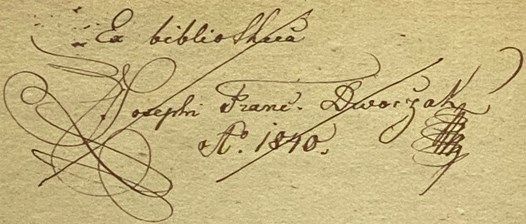 Ex bibliotheca
Josephi Franc. Dworzak
Aº. 1840.